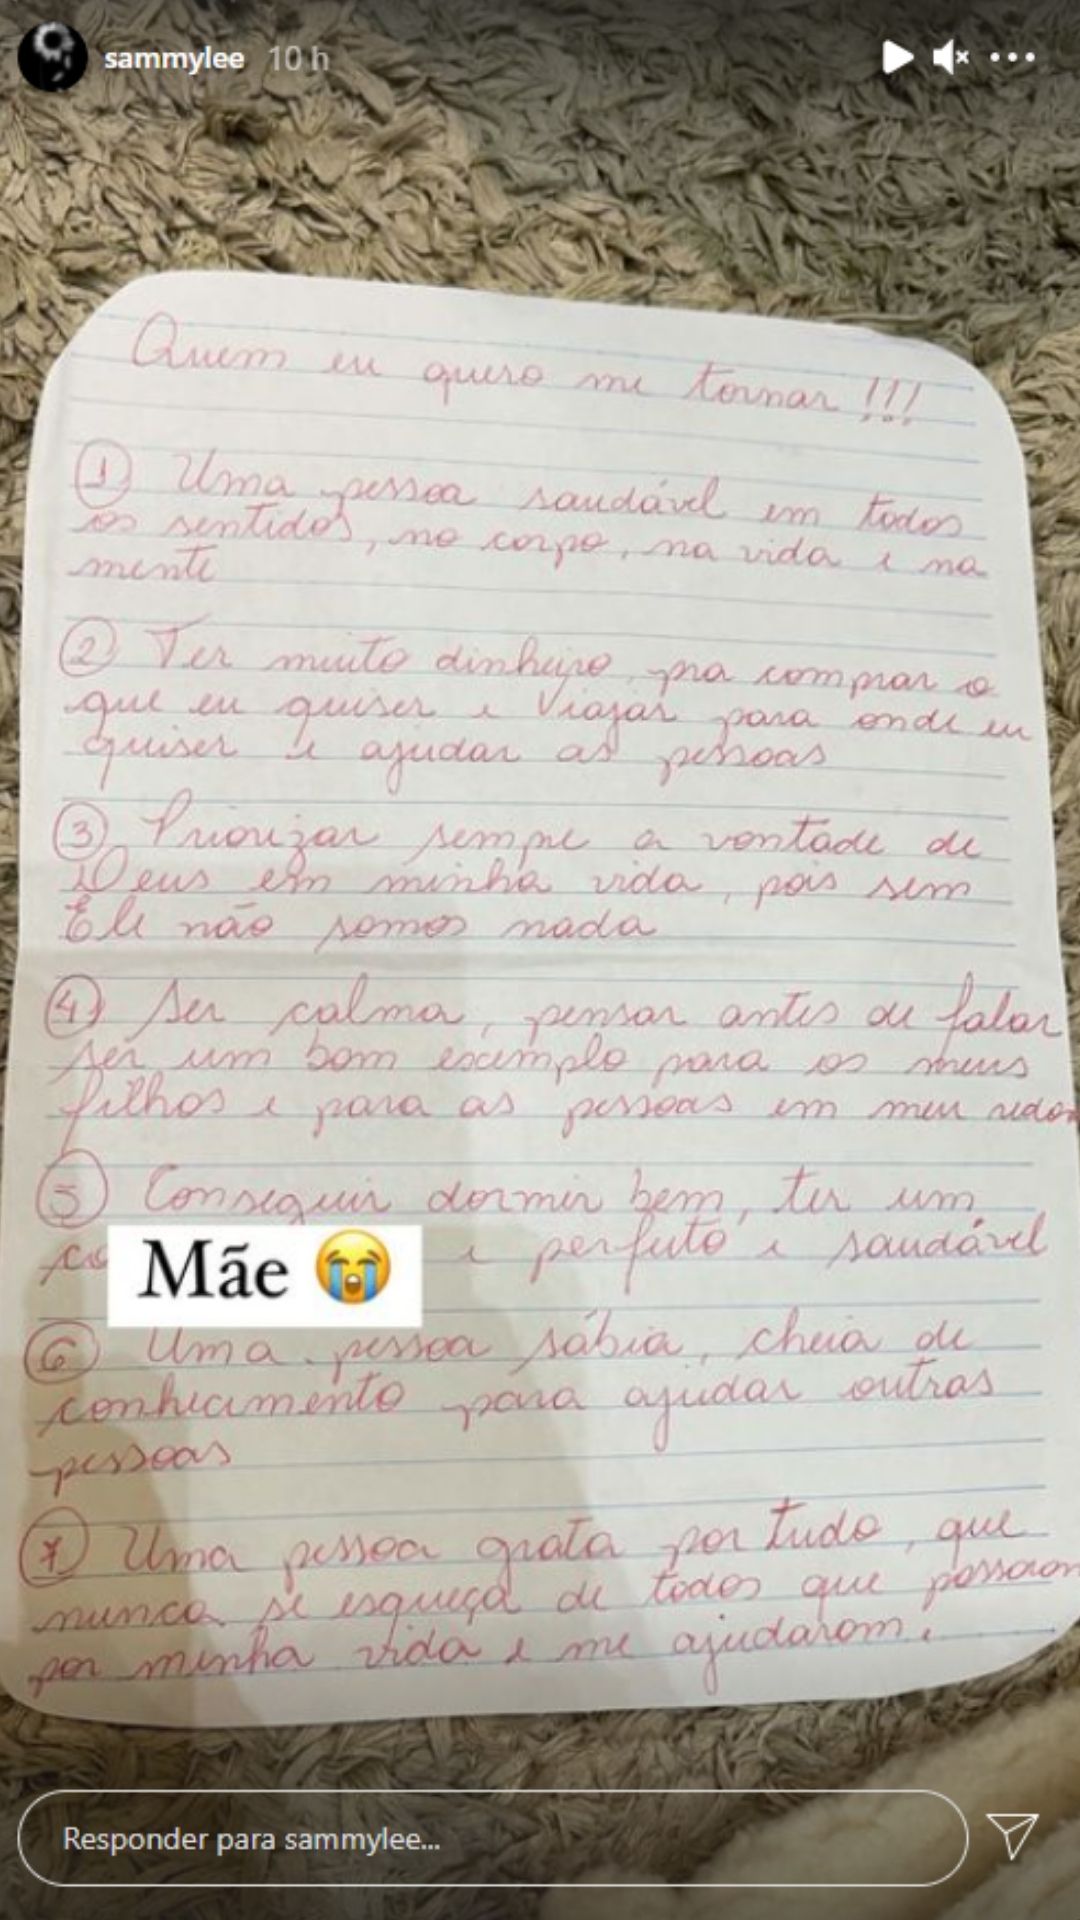 sammylee 10 h
Quem eu quero me tornar !!!
1 Uma pessoa saudável em todos
os sentidos, no corpo, na vida e na
mente
2 Ter muito dinheiro, pra comprar o
que eu quiser e viajar para onde eu
quiser e ajudar as pessoas
3 Priorizar sempre a vontade de
Deus em minha vida, pois sem
Ele não somos nada
4 Ser calma, pensar antes de falar
ser um bom exemplo para os meus
filhos e para as pessoas em meu redor
5 Conseguir dormir bem, ter um
e perfeito e saudável
Mãe 😭
6 Uma pessoa sábia, cheia de
conhecimento para ajudar outras
pessoas
7 Uma pessoa grata por tudo, que
nunca se esqueça de todos que passaram
por minha vida e me ajudaram.
Responder para sammylee...